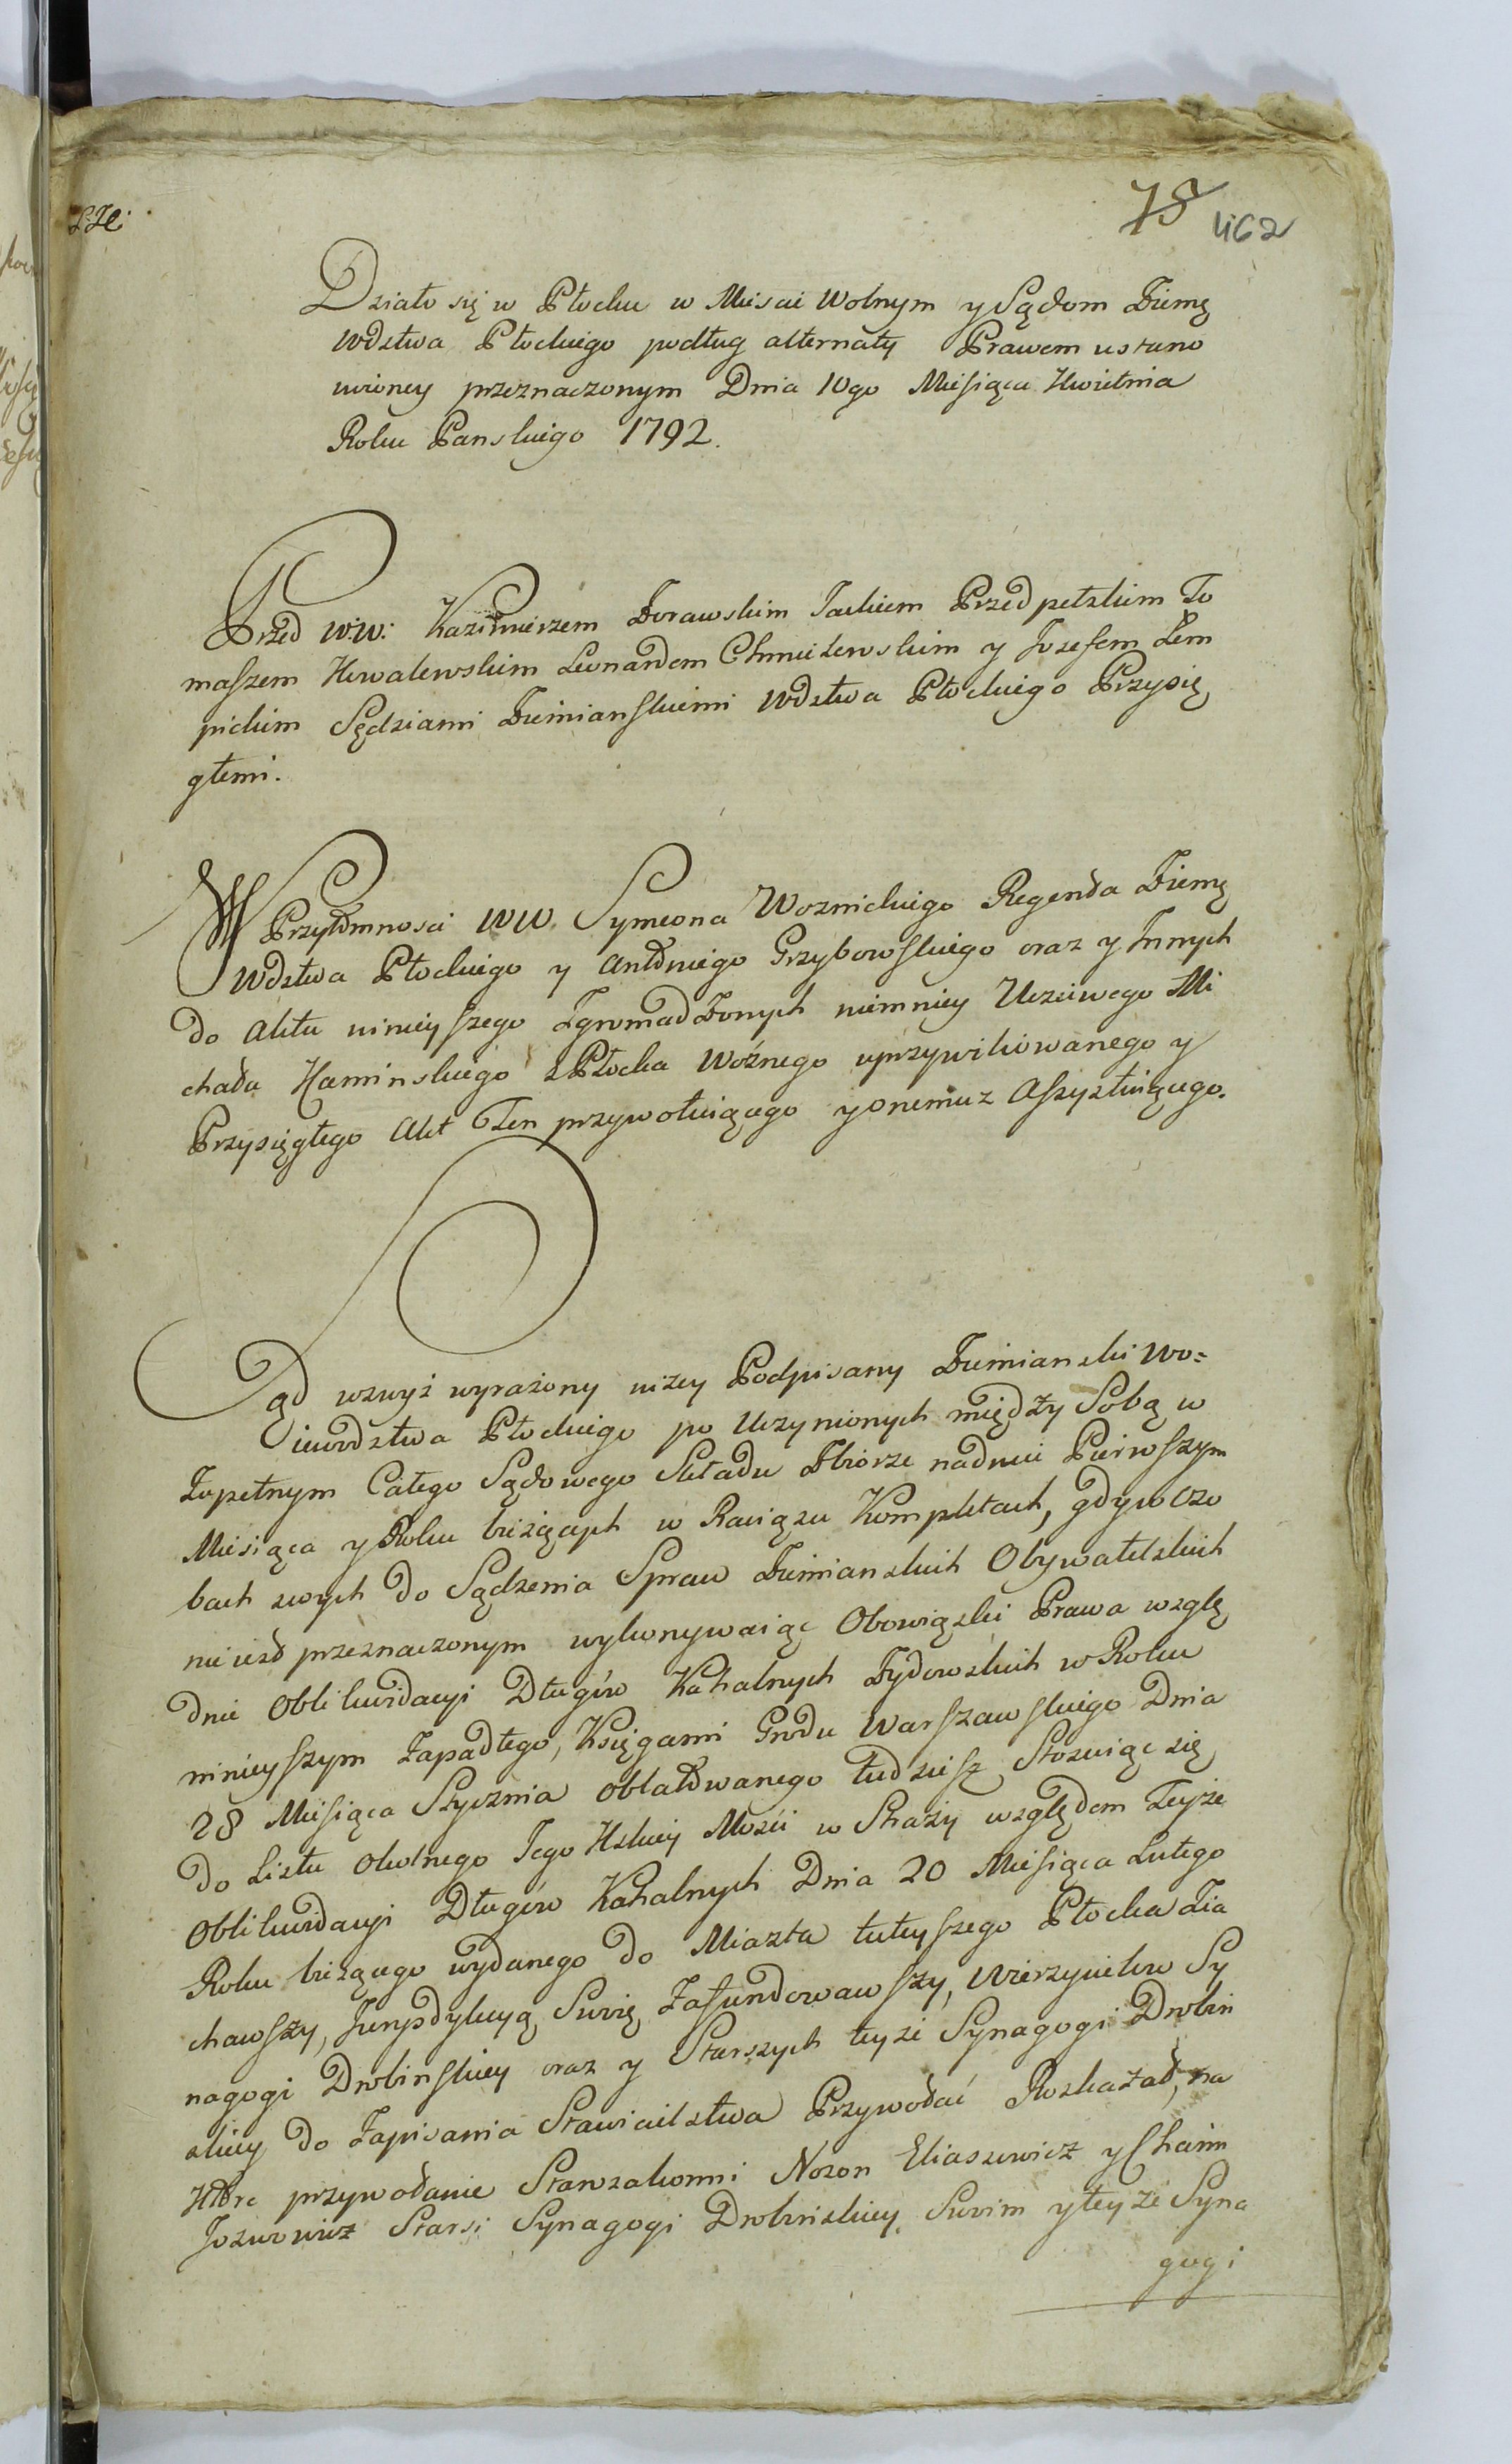 75 462
Działo się w Płocku w Miescie Wolnym y Sądom Ziemę
Wdztwa Płockiego podług alternaty Prawem ustano
wioney przeznaczonym Dnia 10go Miesiąca Kwietnia
Roku Panskiego 1792.
Przed W:W: Kazimierzem Zorawskim Jackiem Przedpełzkim To
maszem Kowalewskim Leonardem Chmielewskim y Jozefem Lem
pickim Sędziami Ziemianskiemi Wdztwa Płockiego Przysię
głemi.
W Przytomnosci WW. Symeona Woznickiego Regenta Ziemę
Wdztwa Płockiego y Antoniego Grzybowskiego oraz y Innych
do Aktu ninieyszego Zgromadzonych niemniey Uczciwego Mi
chała Kaminskiego z Płocka Woźnego uprzywiliowanego y
Przysięgłego Akt Ten przywołuiącego y onemuz Assystuiącego.
Sąd wzwyż wyrażony niżey Podpisany Ziemianski Wo=
iewodztwa Płockiego po Uczynionych między Sobą w
Zupełnym Całego Sądowego Składu Zbiorze nadniu Pierwszym
Miesiąca y Roku bieżących w Raciążu Kompletach, gdy w Oso
bach swych do Sądzenia Spraw Ziemianskich Obywatelskich
nie iest przeznaczonym wykonywaiąc Obowiązki Prawa wzglę
dnie Oblikwidacyi Długów Kahalnych Zydowskich w Roku
ninieyszym Zapadłego, Księgami Grodu Warszawskiego Dnia
28 Miesiąca Stycznia oblatowanego tudziesz Stosuiąc się
do Listu Okolnego Jego Kskiey Mości w Straży względem Teyże
Oblikwidacyi Długów Kahalnych Dnia 20 Miesiąca Lutego
Roku bieżącego wydanego do Miasta tuteyszego Płocka Zia
chawszy, Juryzdykcyą Swoię Zafundowawszy, Wierzycielow Sy
nagogi Drobinskiey oraz y Starszych teyże Synagogi Drobin
skiey do Zapisania Stawicielstwa Przywołać Roskazał, na
Które przywołanie Starozakonni Nozon Eliaszewicz y Chaim
Jozwowicz Starsi Synagogi Drobinskiey Swoim y teyże Syna
gogi